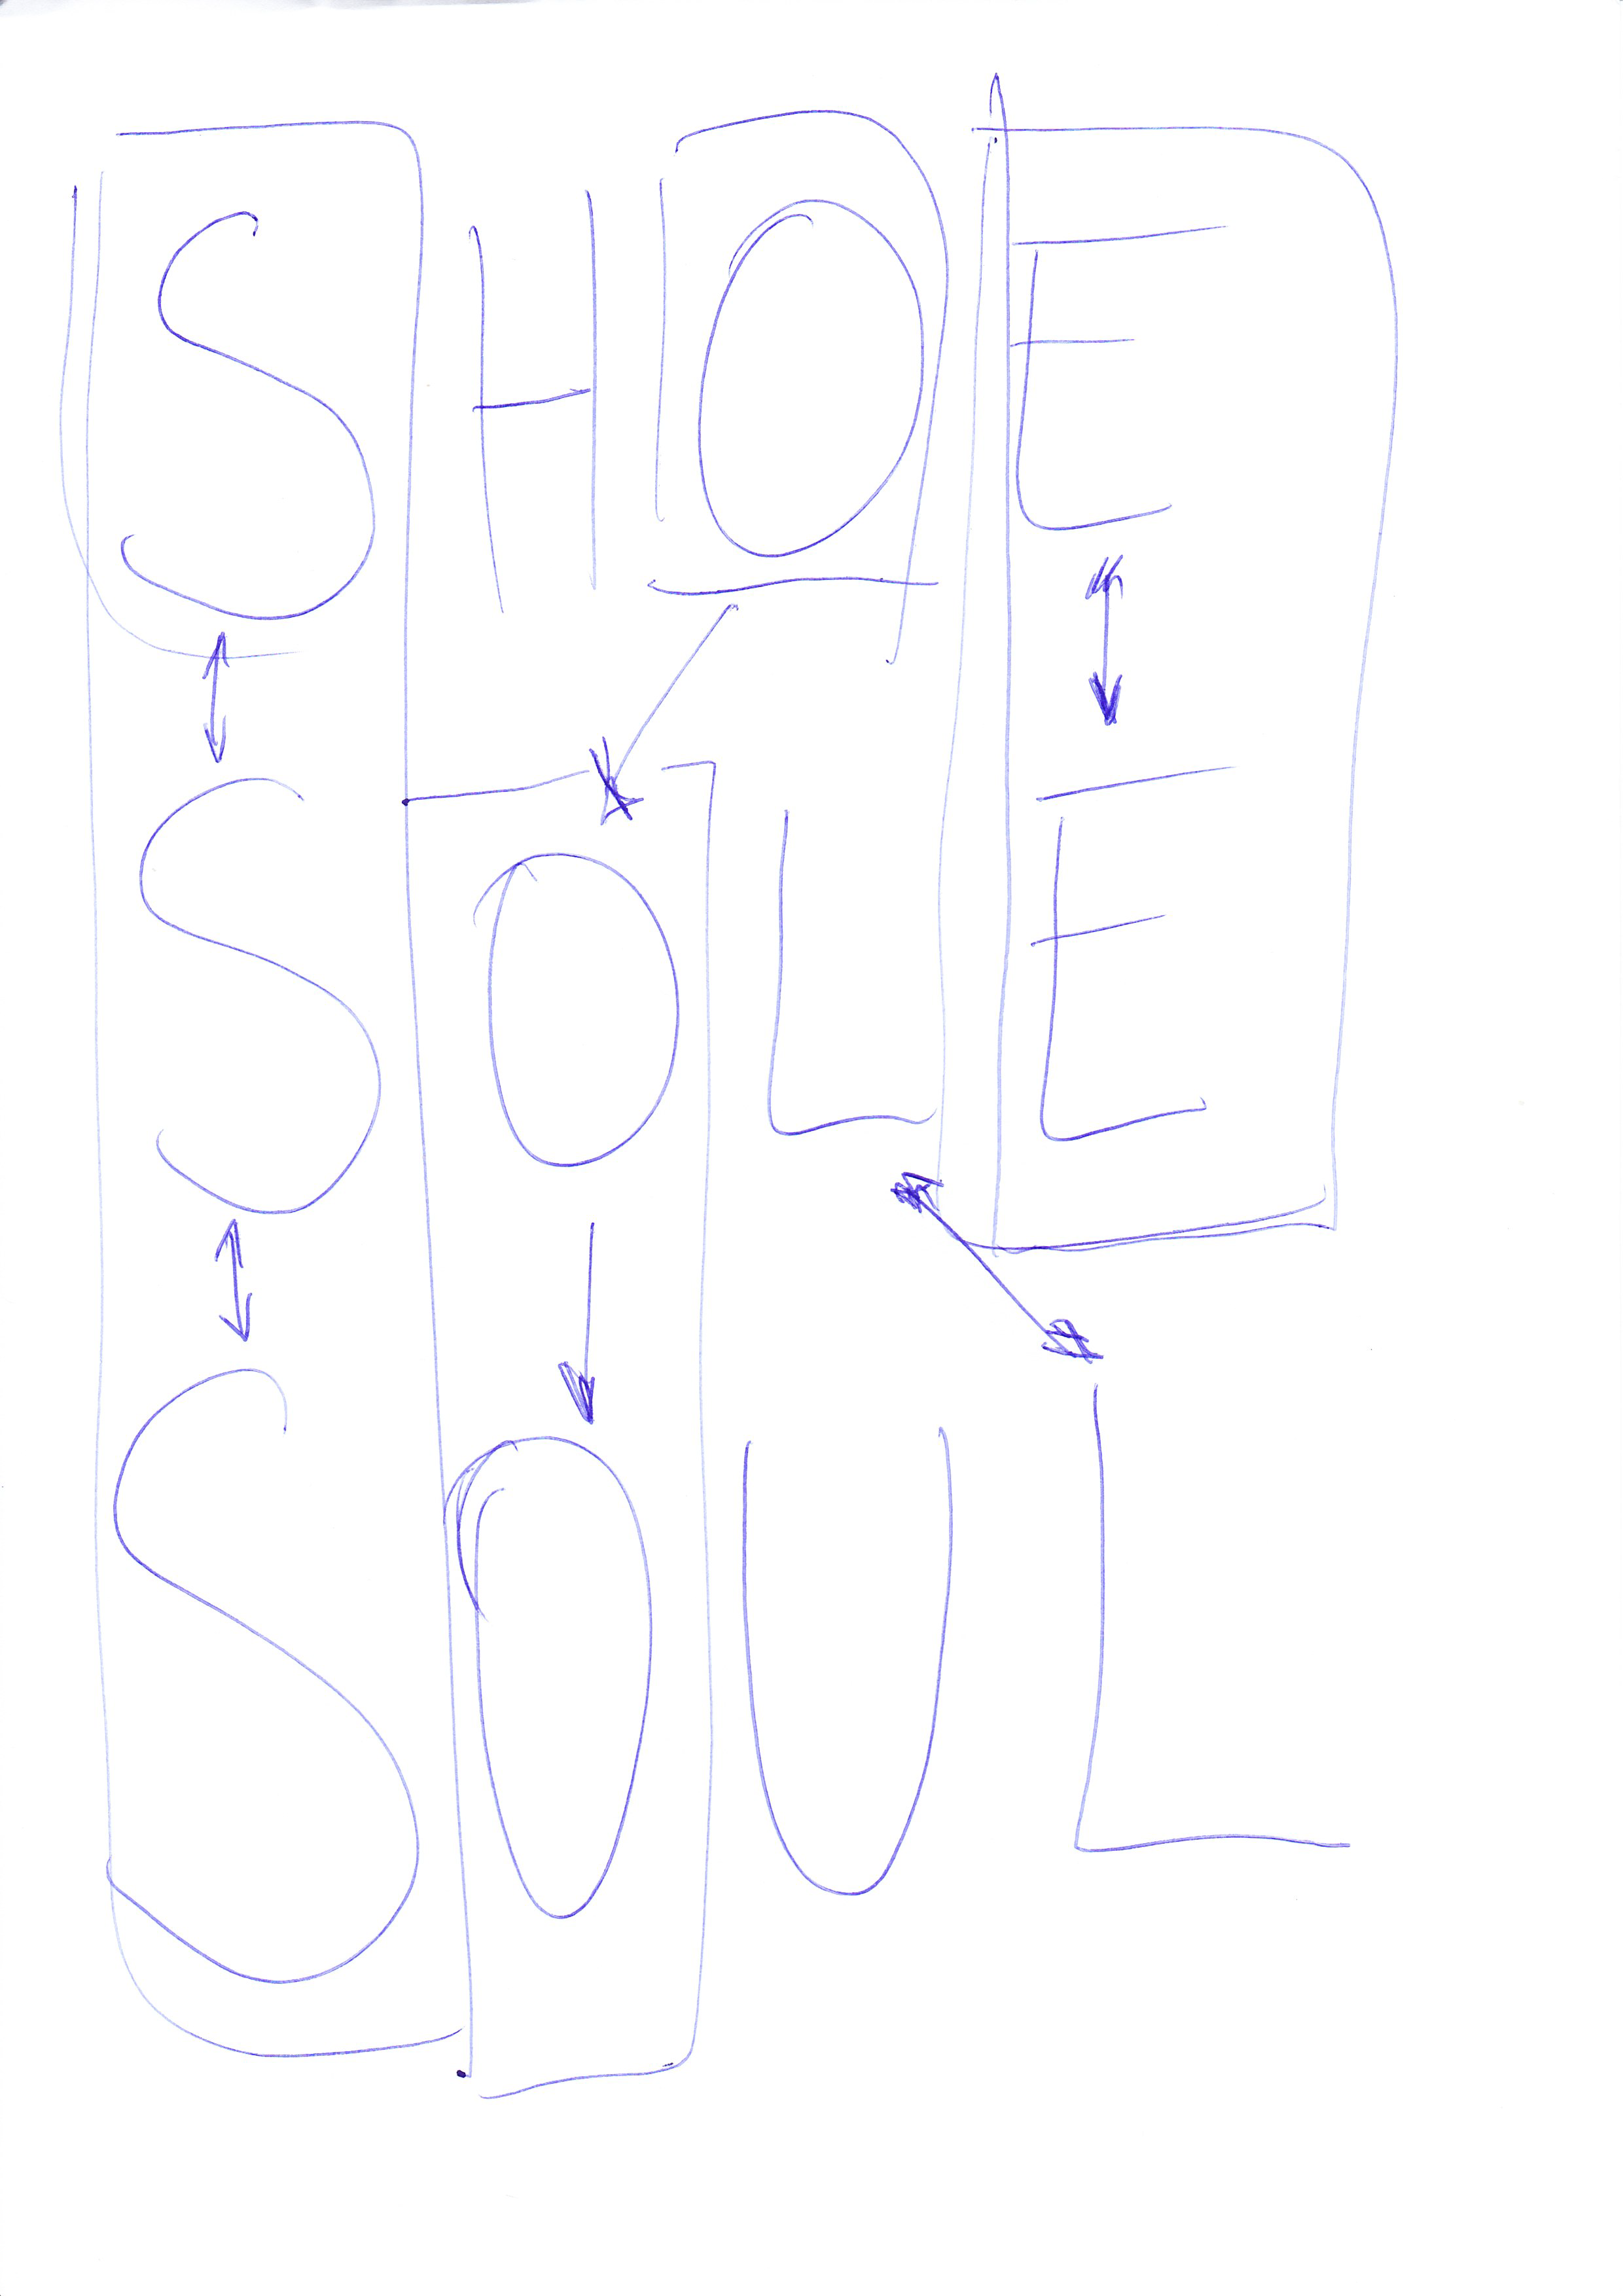 SHOE
SOLE
SOUL